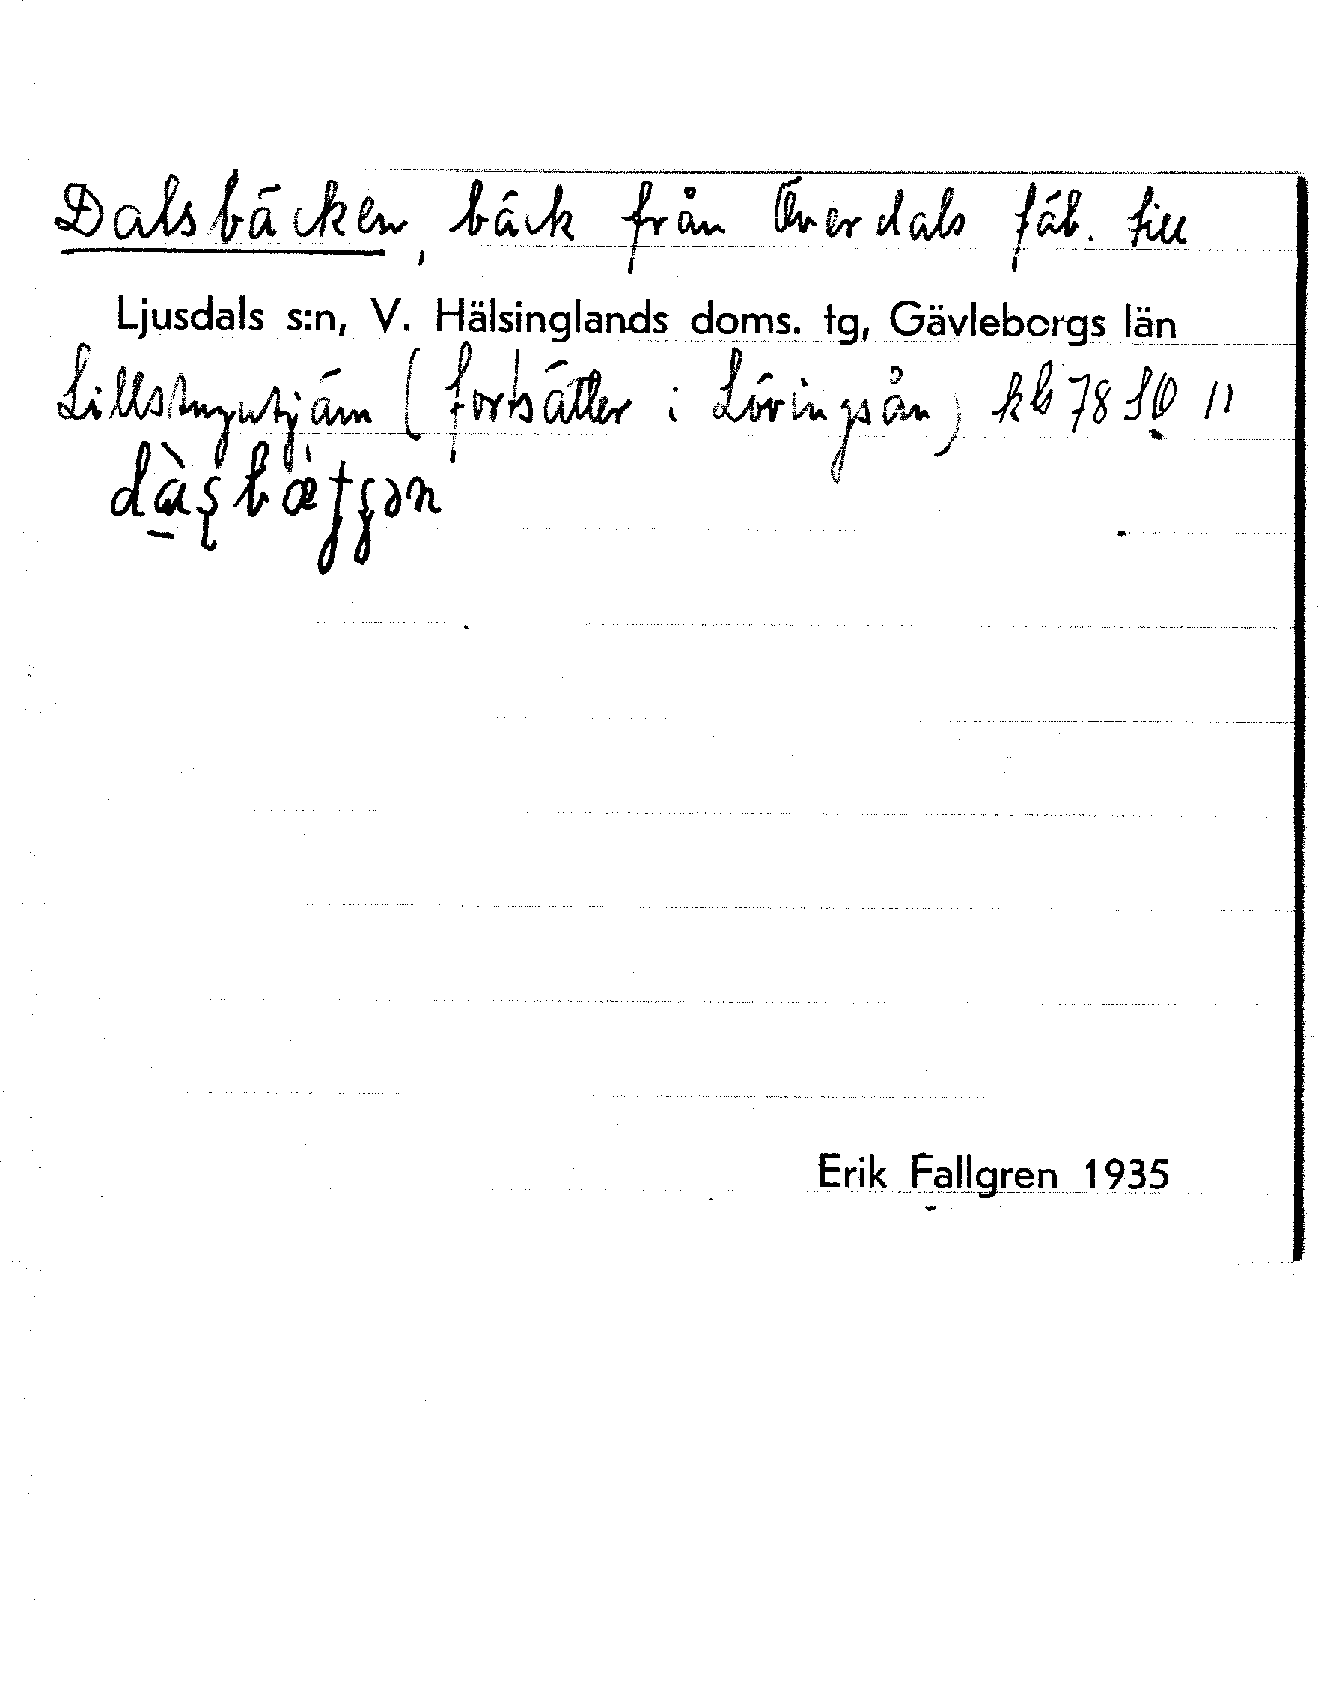 Dalsbäcken, bäck från Överdals fäb. till
Ljusdals s:n, V. Hälsinglands doms. tg, Gävleborgs län
(fortsätter i Lövingsån) kb 78 SO 11
Erik Fallgren 1935